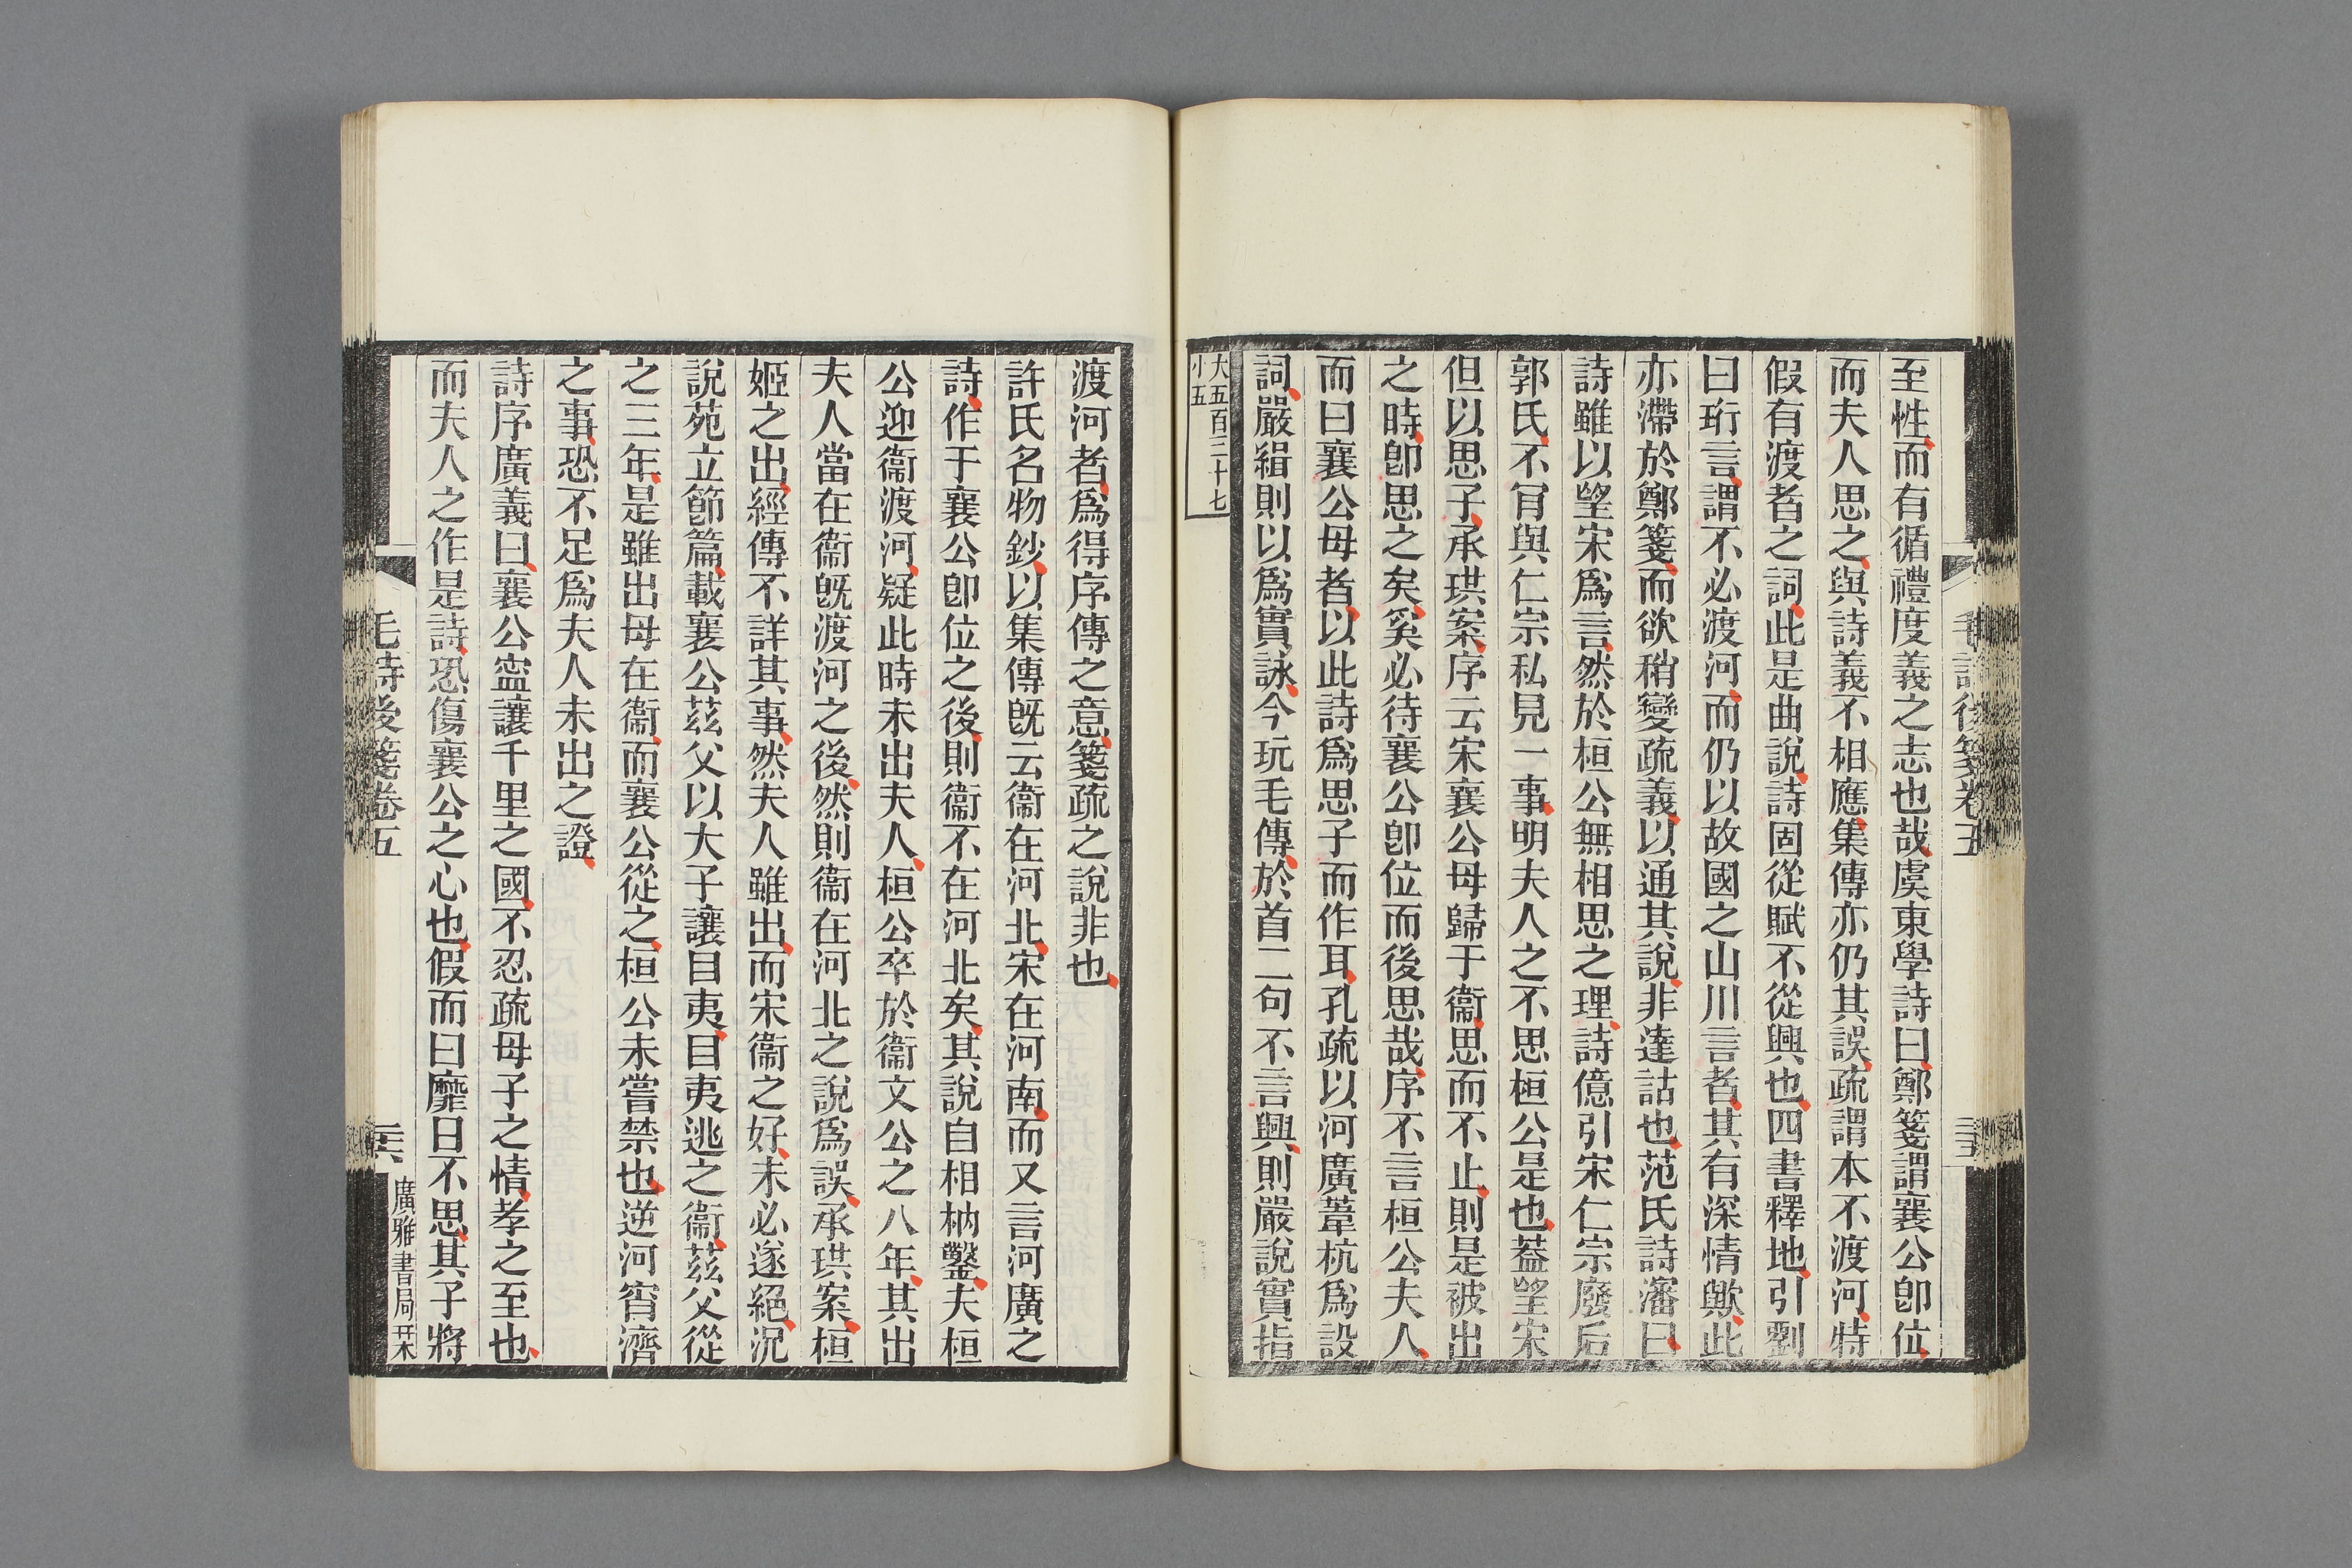 毛詩後箋卷五
至性而有循禮度義之志也哉虞東學詩曰鄭箋謂襄公卽位
而夫人思之與詩義不相應集傳亦仍其誤疏謂本不渡河特
假有渡者之詞此是曲說詩固從賦不從興也四書釋地引劉
曰珩言謂不必渡河而仍以故國之山川言者其有深情歟此
亦滯於鄭箋而欲稍變疏義以通其說非達詁也范氏詩瀋曰
詩雖以望宋爲言然於桓公無相思之理詩億引宋仁宗廢后
郭氏不肎與仁宗私見一事明夫人之不思桓公是也葢望宋
但以思子承珙案序云宋襄公母歸于衞思而不止則是被出
之時卽思之矣奚必待襄公卽位而後思哉序不言桓公夫人
而曰襄公母者以此詩爲思子而作耳孔疏以河廣葦杭爲設
詞嚴緝則以爲實詠今玩毛傳於首二句不言興則嚴說實指
大五百三十七
小五
渡河者爲得序傳之意箋疏之說非也
許氏名物鈔以集傳旣云衞在河北宋在河南而又言河廣之
詩作于襄公卽位之後則衞不在河北矣其說自相枘鑿夫桓
公迎衞渡河疑此時未出夫人桓公卒於衞文公之八年其出
夫人當在衞旣渡河之後然則衞在河北之說爲誤承珙案桓
姬之出經傳不詳其事然夫人雖出而宋衞之好未必遂絕況
說苑立節篇載襄公茲父以大子讓目夷目夷逃之衞茲父從
之三年是雖出母在衞而襄公從之桓公未嘗禁也逆河宵濟
之事恐不足爲夫人未出之證
詩序廣義曰襄公寍讓千里之國不忍疏母子之情孝之至也
而夫人之作是詩恐傷襄公之心也假而曰靡日不思其子將
毛詩後箋卷五
廣雅書局栞